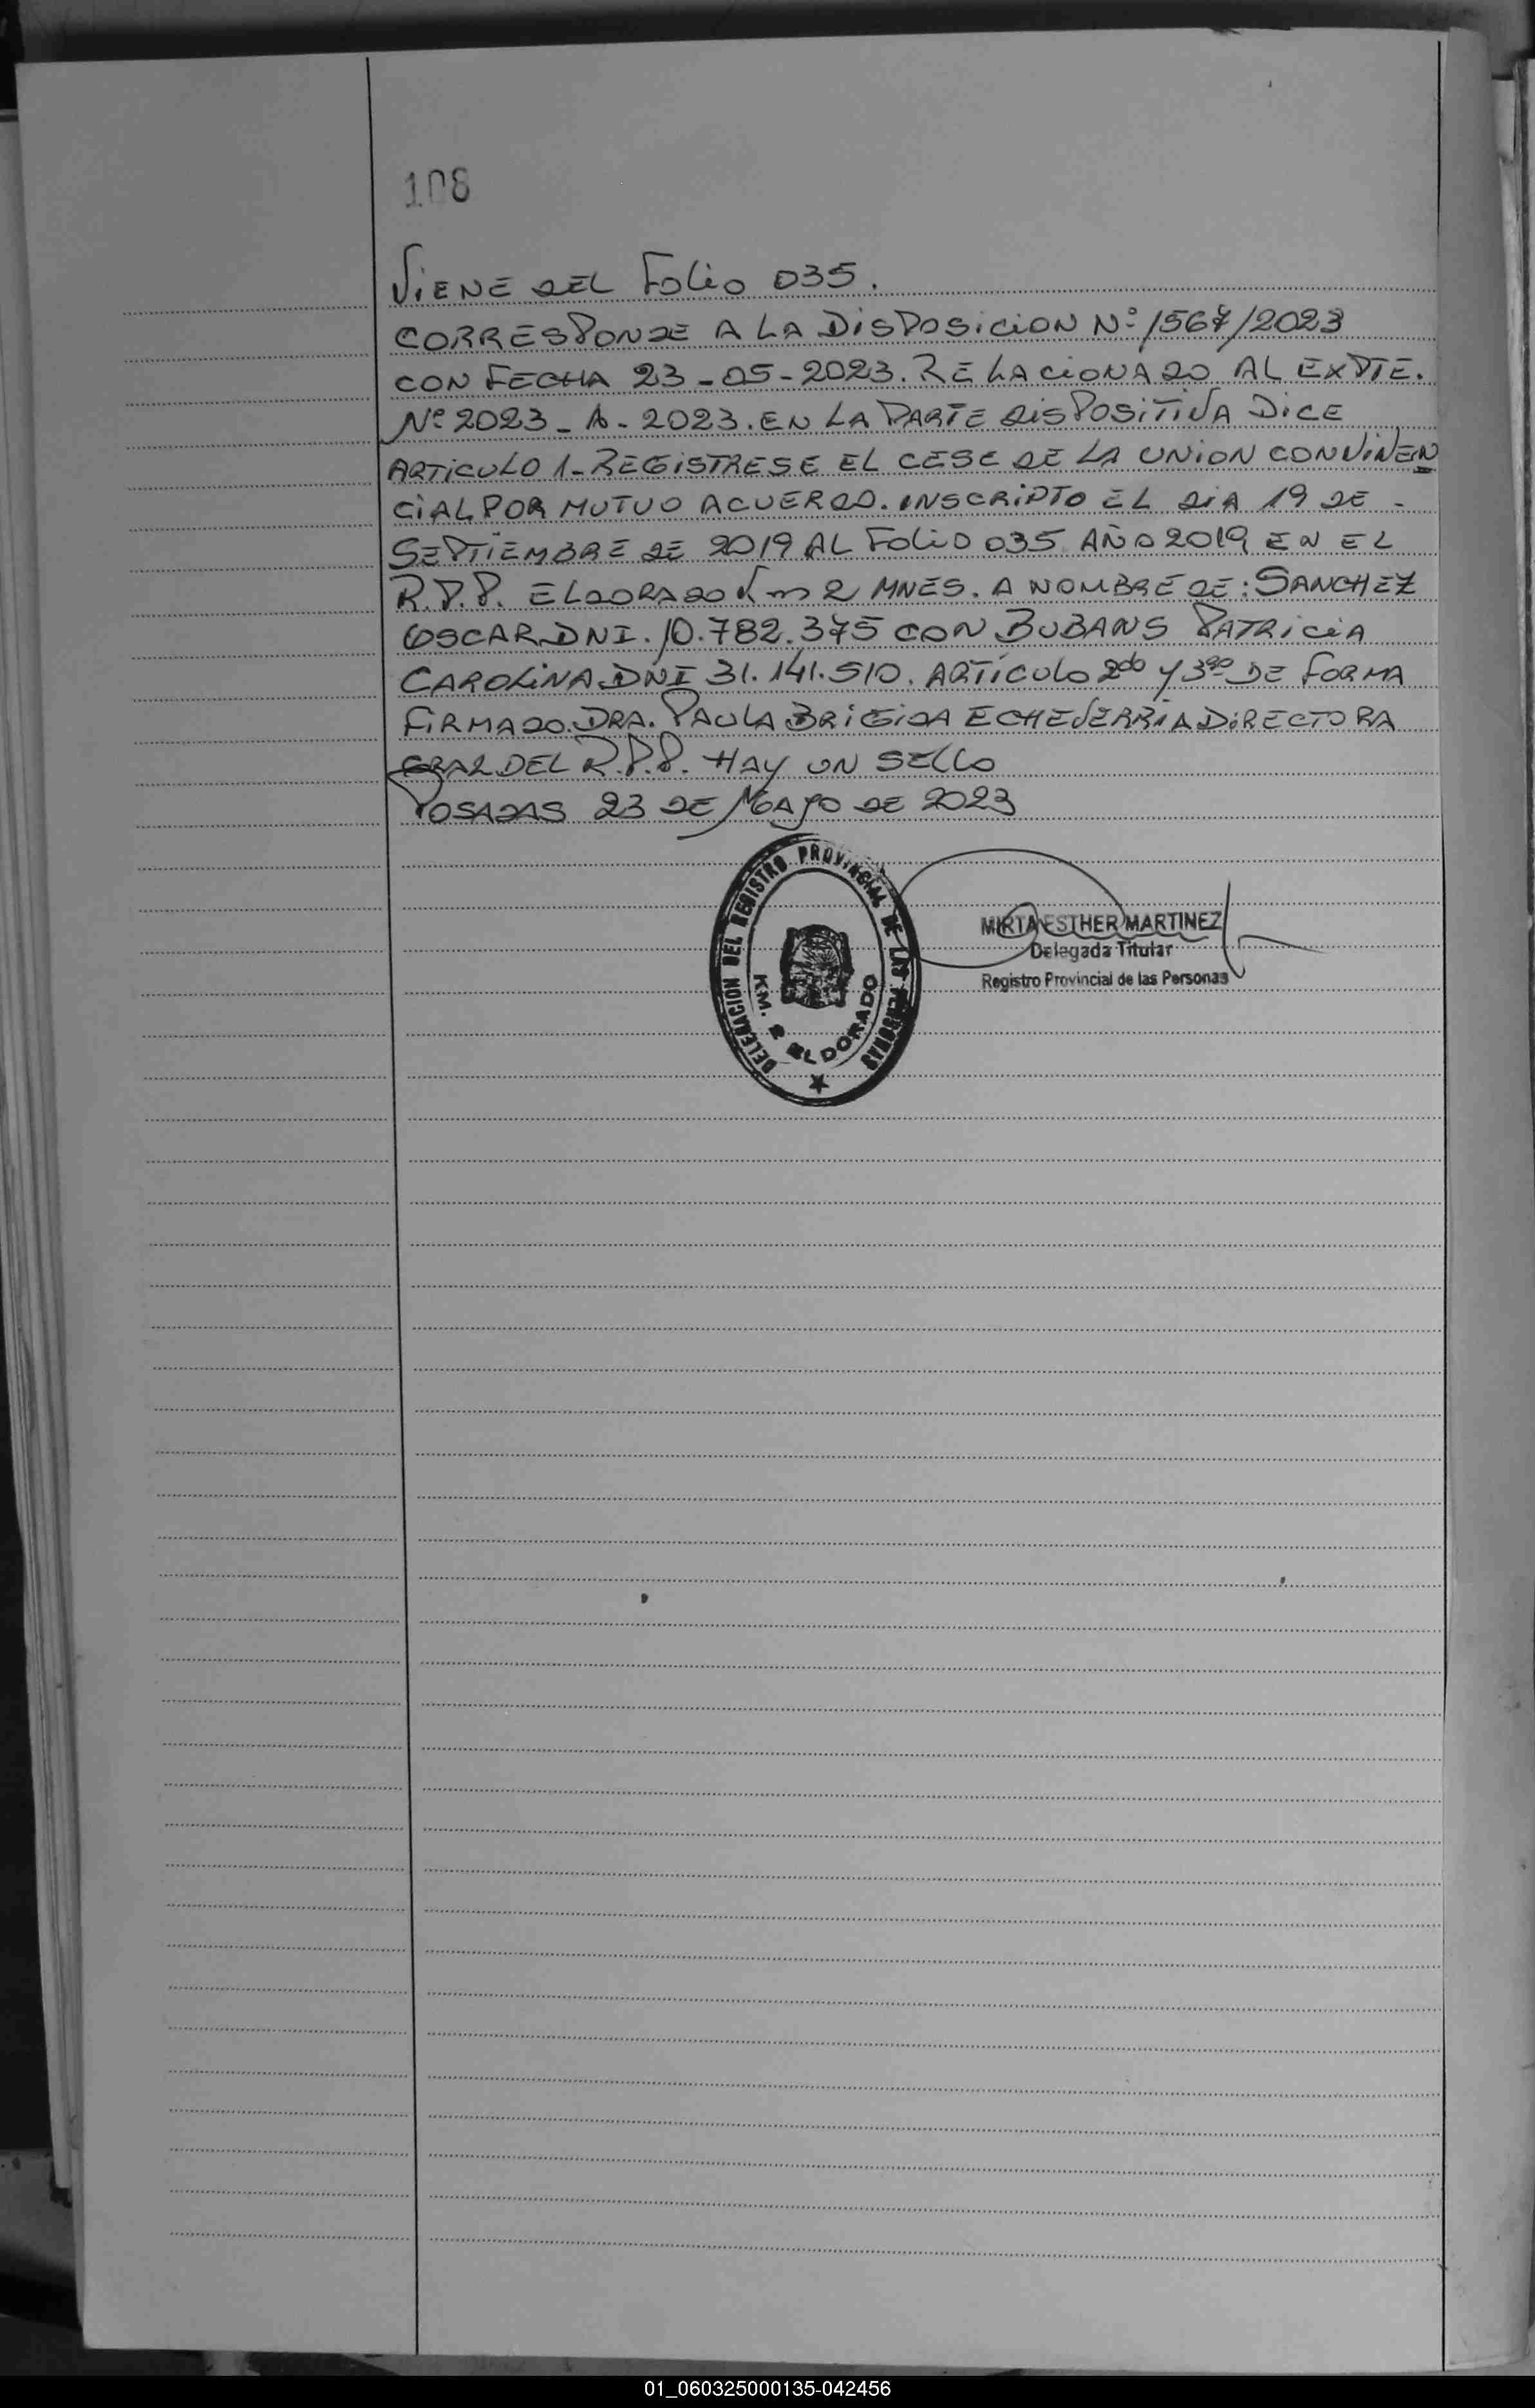 108
Viene del Folio 035.
CORRESPONDE A LA DISPOSICION Nº 1567/2023
CON FECHA 23-05-2023. RELACIONADO AL EXPTE.
Nº 2023-A-2023. EN LA PARTE DISPOSITIVA DICE
ARTICULO 1-REGISTRESE EL CESE DE LA UNION CONVIVEN
CIAL POR MUTUO ACUERDO. INSCRIPTO EL DIA 19 DE -
SEPTIEMBRE DE 2019 AL FOLIO 035 AÑO 2019 EN EL
R.P.P. ELDORADO Km 2 MNES. A NOMBRE DE: SANCHEZ
OSCAR DNI. 10.782.375 CON BUBANS PATRICIA
CAROLINA DNI 31.141.510. ARTÍCULO 2do y 3ro DE FORMA
FIRMADO. DRA. PAULA BRIGIDA ECHEVERRIA DIRECTORA
GRAL DEL R.P.P. HAY UN SELLO
POSADAS 23 DE MAYO DE 2023
DELEGACION DEL REGISTRO PROVINCIAL DE LAS PERSONAS
KM. 2 ELDORADO
MIRTA ESTHER MARTINEZ
Delegada Titular
Registro Provincial de las Personas
01_060325000135-042456